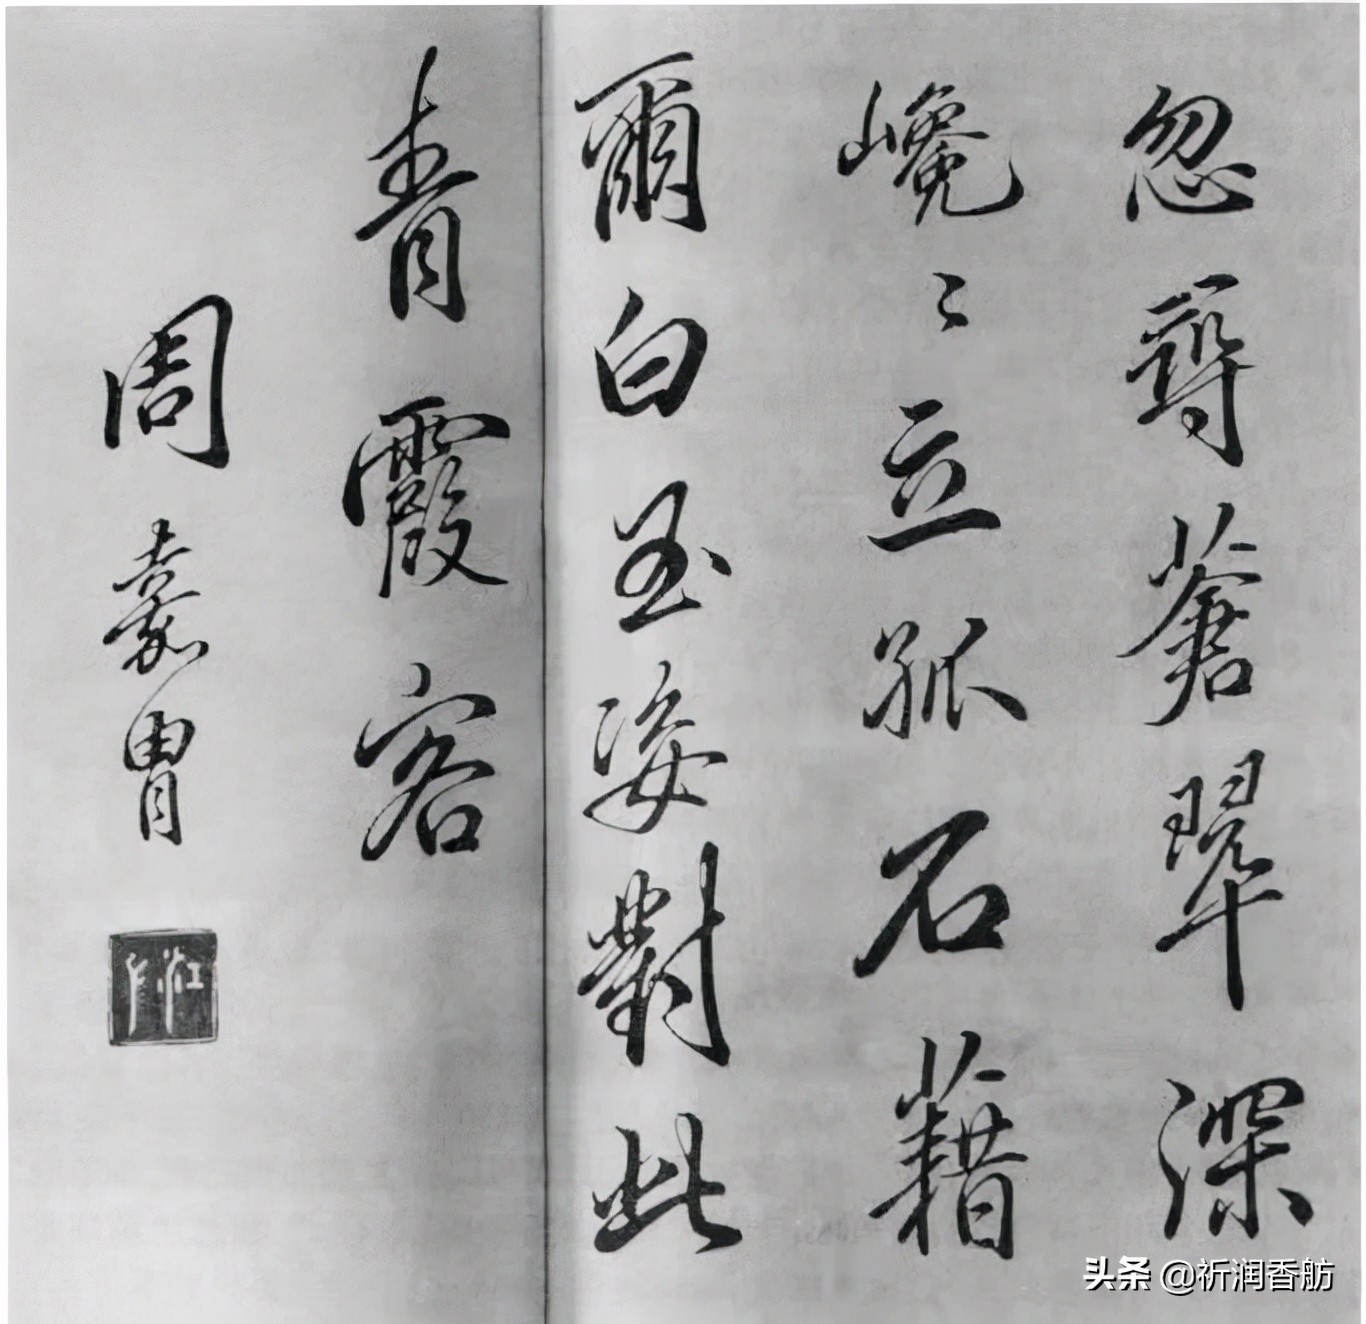 忽尋蒼翠深
巉〻立孤石藉
爾白玉姿對此
青霞客
周嘉胄
头条 @祈润香舫